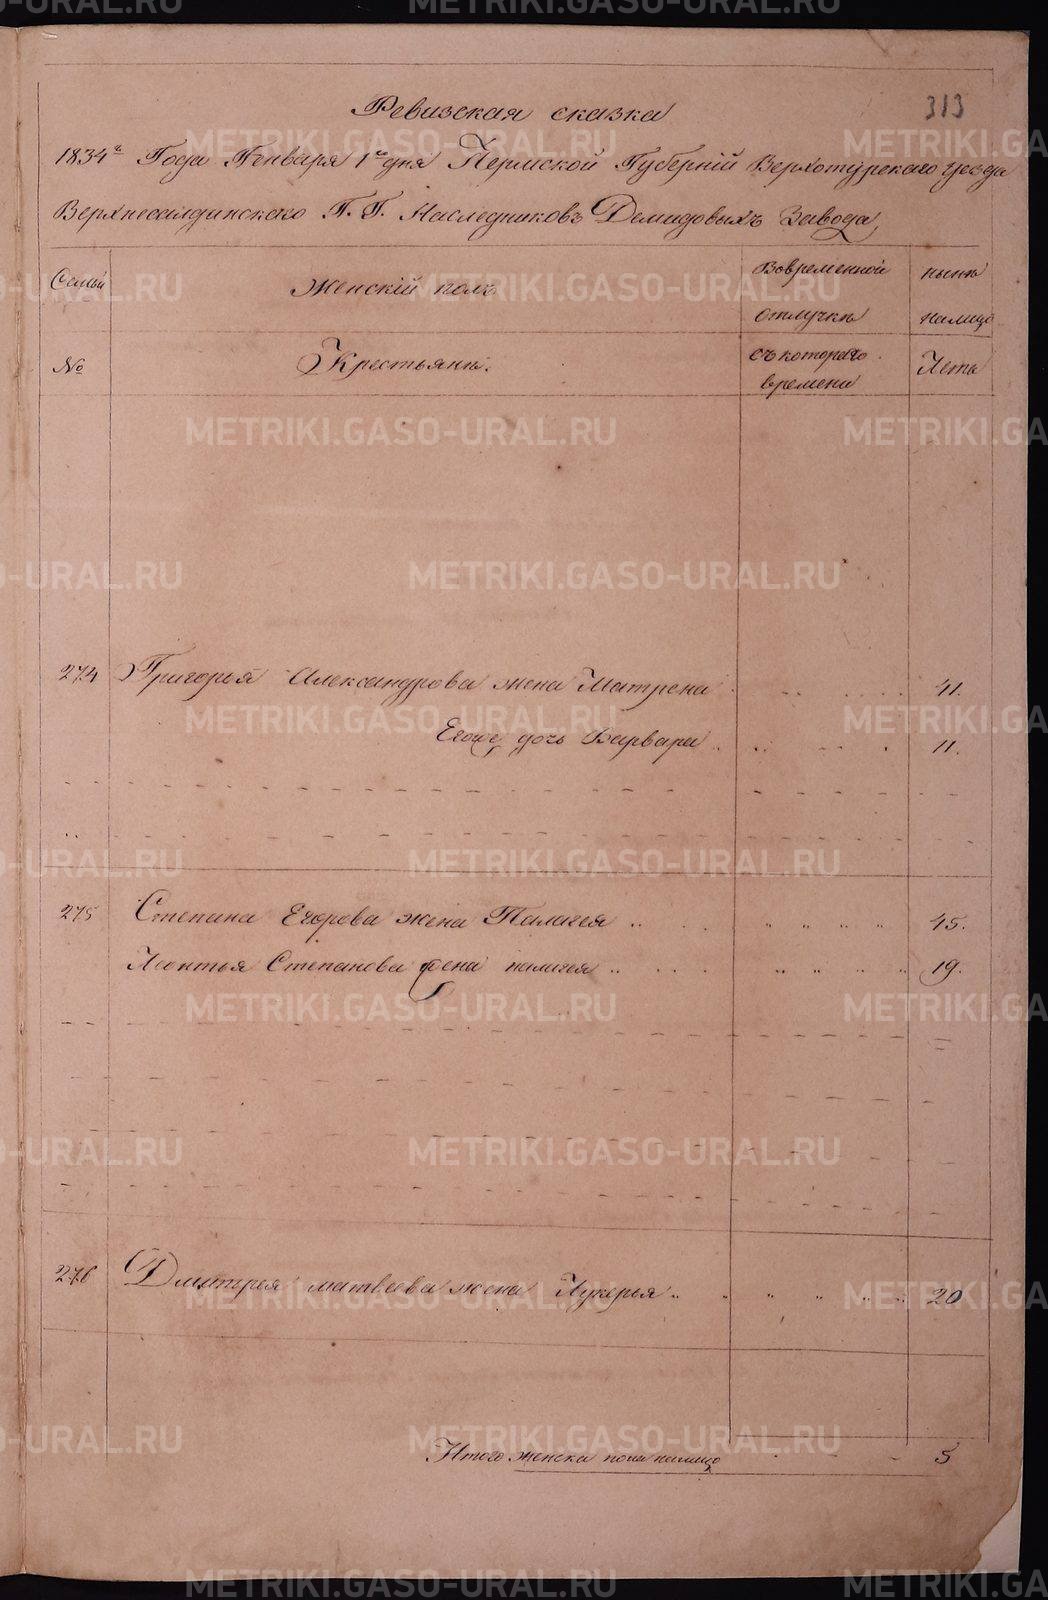 313
Ревизская сказка
1834го Года Генваря 1го дня Пермской Губерній Верхотурского уезда
Верхнесалдинского Г. Г. Наследниковъ Демидовыхъ Завода
Семьи
Женскій полъ
Вовременной отлучке
ныне налицо
№
Крестьяне.
съ которого времени
Лета
274 Григорья Александрова жена Матрена 41.
Егоже дочь Варвара 11.
275 Степана Егорова жена Палагея 45.
Леонтья Степанова жена палагея 19.
276 Дмитрея матвеева жена Лукерья 20
Итого женска пола налицо 5
METRIKI.GASO-URAL.RU